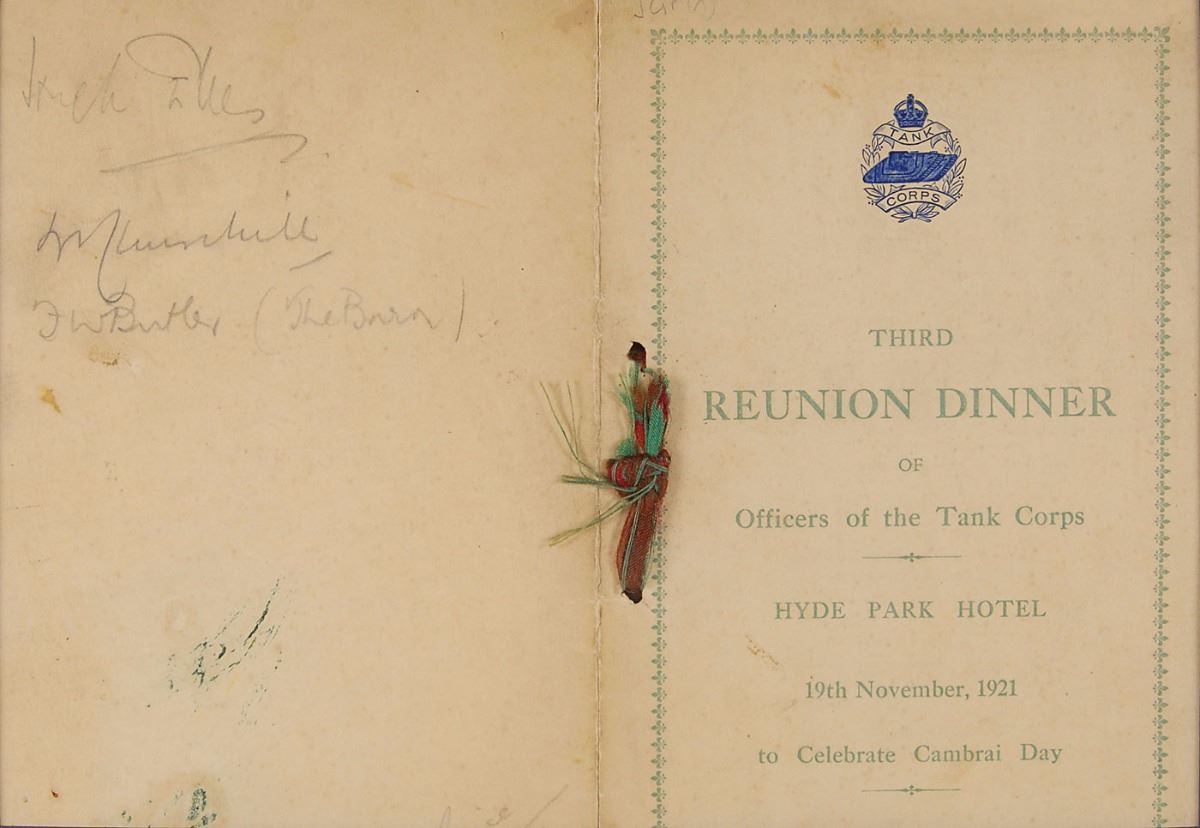 Hugh Elles
W Churchill
F W Butler (The Baron)
TANK
CORPS
THIRD
REUNION DINNER
OF
Officers of the Tank Corps
HYDE PARK HOTEL
19th November, 1921
to Celebrate Cambrai Day